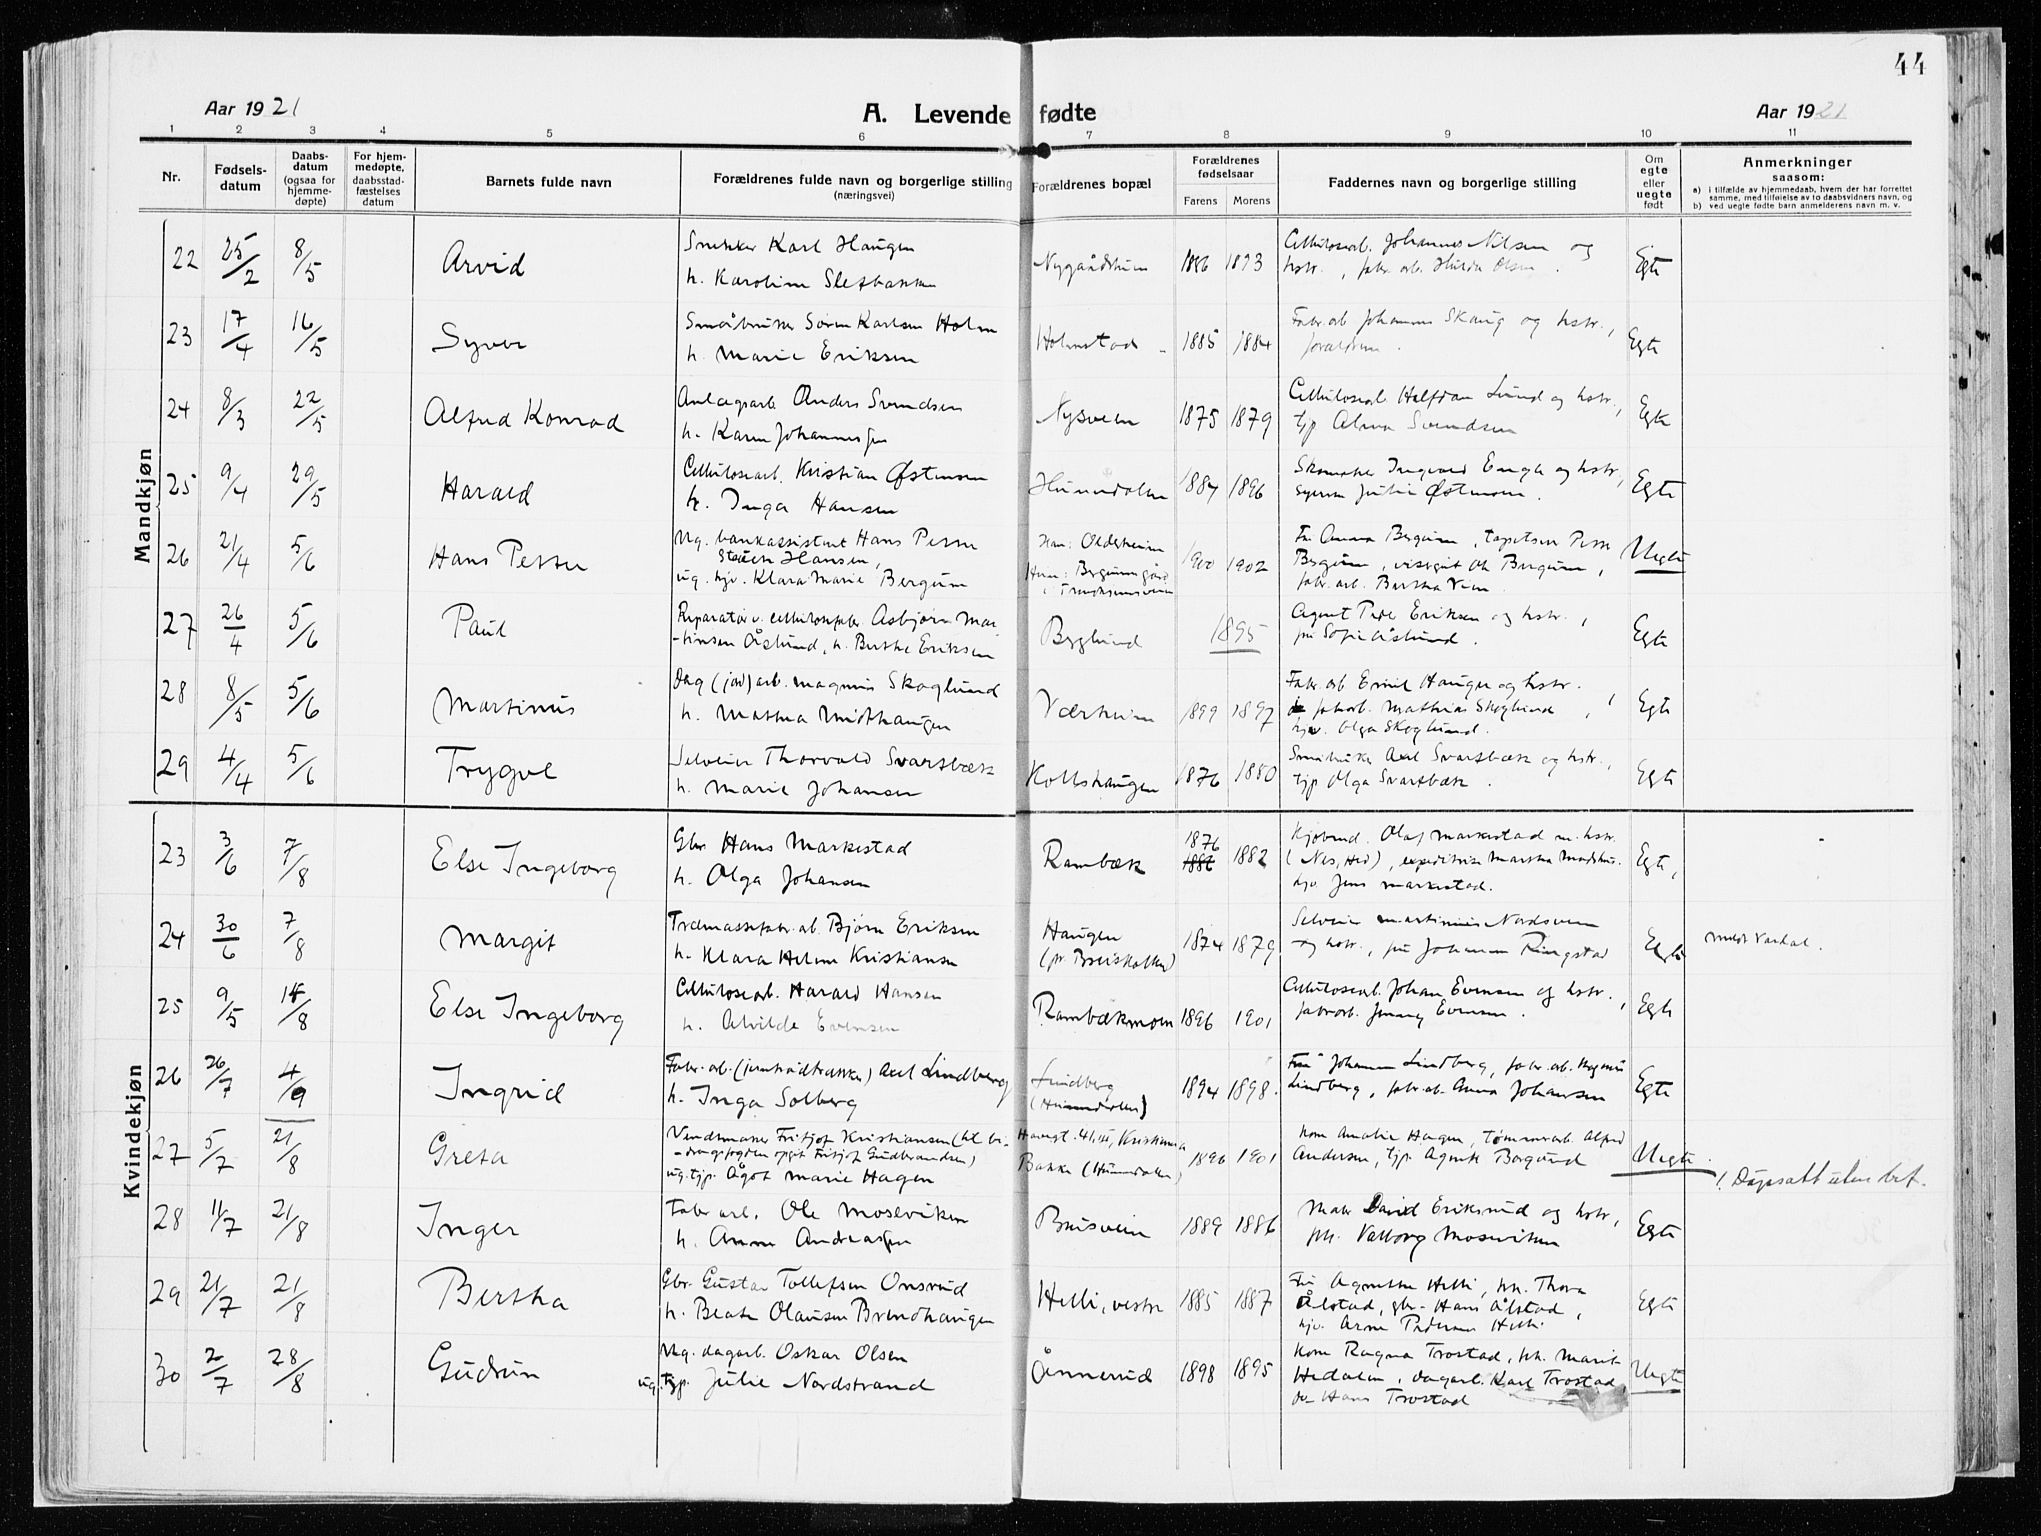 44
Aar 1921
A. Levende fødte
Aar 1921
1 2 3 4 5 6 7 8 9 10 11
Nr.
Fødsels-datum
Daabs-datum (ogsaa for hjemme-døpte)
For hjem-medøpte, daabsstad-fæstelses datum
Barnets fulde navn
Forældrenes fulde navn og borgerlige stilling (næringsvei)
Forældrenes bopæl
Forældrenes fødselsaar
Farens Morens
Faddernes navn og borgerlige stilling
Om egte eller uegte født
Anmerkninger saasom:
a) i tilfælde av hjemmedaab, hvem der har forrettet samme, med tilføielse av to daabsvidners navn, og
b) ved uegte fødte barn anmelderens navn m. v.
Mandkjøn
22 25/2 8/5 Arvid
Snekker Karl Haugen
h. Karoline Sletbakken
1893
Cellulosearb. Johannes Nilsen og
hstr., fabr. arb. Hulda Olsen.
Egte
23 17/4 16/5 Syver
Småbruker Søren Karlsen Holm
h. Marie Eriksen
Holmstad 1885 1884
Fabr. arb. Johannes Skaug og hstr.,
forældrene.
Egte
24 8/3 22/5 Alfred Konrad
Anlægsarb. Anders Svendsen
h. Karen Johannesen
Nysveen 1875 1879
Cellulosearb. Halfdan Lund og hstr.,
tjp. Alma Svendsen
Egte
25 9/4 29/5 Harald
Cellulosearb. Kristian Østensen
h. Inga Hansen
Hunndalen 1887 1896
Skomaker Ingvald Enger og hstr.,
syerske Julie Østensen.
Egte
26 21/4 5/6 Hans Petter
Ug. bankassistent Hans Petter
Hansen,
ug. hjv. Klara Marie Bergum
Han: Olderheim
Hun: Bergumgård
1900 1902
Fr. Anna Bergum, tapetserer Peter
Bergum,
fabr. arb. Bertha Veen.
Uegte
27 26/4 5/6 Paul
Reparatør v. cellulosefabr. Asbjørn Mar-
-tinsen Åslund, h. Berthe Eriksen
Byglund 1895
Agent Peder Eriksen og hstr.,
pike Sofie Åslund.
Egte
28 8/5 5/6 Martinus
Dag (jord) arb. Magnus Skoglund
h. Mathea Midthaugen
Værheim 1899 1897
Fabr. arb. Emil Haugen og hstr.,
fabr. arb. Mathias Skoglund,
hjv. Olga Skoglund.
Egte
29 4/4 5/6 Trygve
Selveier Thorvald Svartbæk
h. Marie Johansen
Kolbshaugen 1876 1880
Småbruker Axel Svartbæk og hstr.,
tjp. Olga Svartbæk.
Egte
Kvindekjøn
23 3/6 7/8 Else Ingeborg
Gbr. Hans Markestad
h. Olga Johansen
Rambæk 1876 1886 1882
Kjøbmd. Olaf Markestad m. hstr.
(Nes, Hed),
hjv. Jens Markestad.
Egte,
24 30/6 7/8 Margit
Træmassefabr. ab. Bjørn Eriksen
h. Klara Helene Kristiansen
Haugen
1874 1879
Selveier Martinius Nordsveen
og hstr., pike Johanne Ringstad
Egte
meldt Vardal.
25 9/5 14/8 Else Ingeborg
Cellulosearb. Harald Hansen
h. Alvilde Evensen
Rambækmoen 1896 1901
Cellulosearb. Johan Evensen og hstr.,
fabr. arb. Jenny Evensen.
Egte
26 26/7 4/9 Ingrid
Fabr. arb. (jerntrådtrækker) Axel Lindberg
h. Inga Solberg
Lindberg
(Hunndalen)
1894 1898.
Fru Johanne Lindberg, fabr. arb. Magnus
Lindberg, fabr. arb. Anna Johansen
Egte
27 5/7 21/8 Greta
Vindusmaker Fritjof Kristiansen (til bi-
-dragsfogden opgit Fritjof Gudbrandsen)
ug. tjp. Ågot Marie Hagen
Havegt. 41, III, Kristiania
Bakke (Hunndalen)
1896 1901
Kone Amalie Hagen, tømmerarb. Alfred
Andersen, tjp. Agnete Borgund
Uegte.
28 11/7 21/8 Inger
Fabr. arb. Ole Moseviken
h. Anna Andreassen
Brusveen 1889 1886
Maler David Eriksrud og hstr.,
pk. Valborg Moseviken
Egte
29 21/7 21/8 Bertha
Gbr. Gustav Tollefsen Onsrud
h. Beate Olausen Brendhaugen
Helli, vestre 1885 1887
Fru Agnethe Helli, pk. Thora
Ålstad, gbr. Hans Ålstad,
hjv. Arne Pedersen Helli
Egte
30 2/7 28/8 Gudrun
Ug. dagarb. Oskar Olsen
ug. tjp. Julie Nordstrand
Ånnerud 1898 1895
Kone Ragna Trostad, pk. Marit
Hedalen, dagarb. Karl Trostad
do Hans Trostad
Uegte